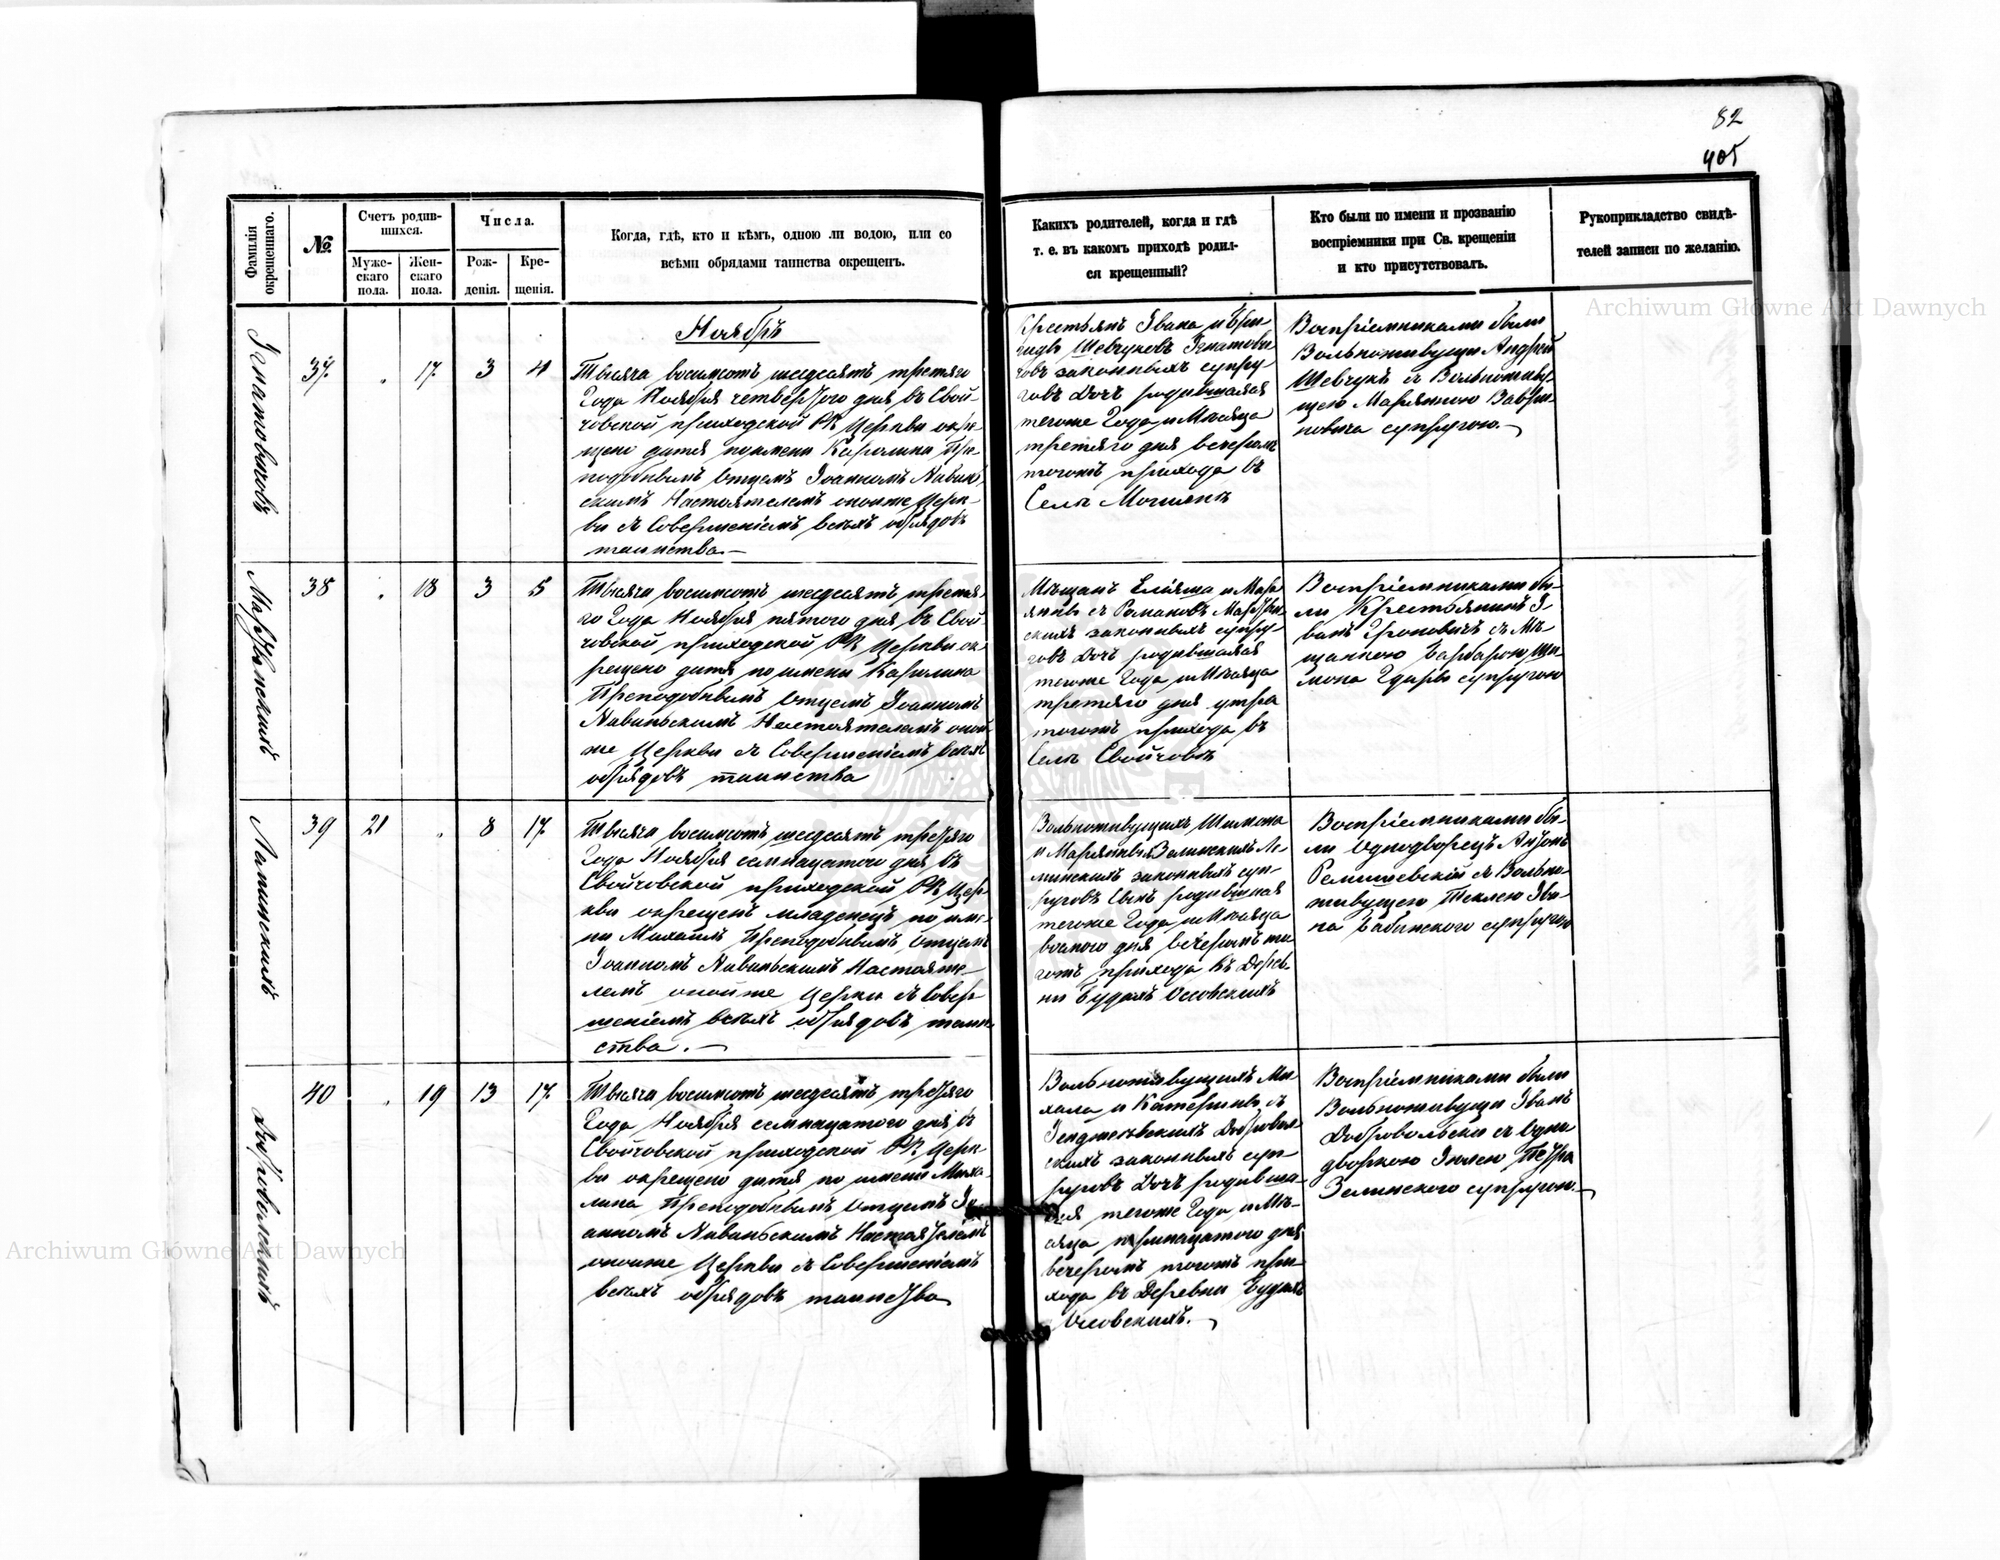 82
405
Фамилія окрещеннаго.
№
Счетъ родив-
шихся.
Муже-
скаго
пола.
Жен-
скаго
пола.
Числа.
Рож-
денія.
Кре-
щенія.
Когда, гдѣ, кто и кѣмъ, одною ли водою, или со
всѣми обрядами таинства окрещенъ.
Каких родителей, когда и гдѣ
т. е. въ какомъ приходѣ родил-
ся крещенный?
Кто были по имени и прозванію
воспріемники при Св. крещеніи
и кто присутствовалъ.
Рукоприкладство свидѣ-
телей записи по желанію.
Archiwum Główne Akt Dawnych
Ноябрь
Игнатовичовъ
37. 17. 3 4
Тысяча восимсотъ шесдесятъ третяго
Года Ноября четвертого дня въ Свой-
човской приходской РК Церкви окре-
щено дитя поимени Каролина Пре-
подобнымъ Отцемъ Іоанномъ
скимъ Настоятелемъ оноиже Церк-
ви съ Совершеніемъ всехъ обрядовъ
таинства.—
Крестьянъ Ивана и
Шевчуковъ Игнатови
човъ законныхъ супру-
говъ Дочъ родившаяся
тогоже Года и Месяца
третяго дня вечеромъ
тогожъ прихода въ
Селе
Воспріемниками были
Вольноживущи Андрей
Шевчукъ съ Вольноживу-
щею Марянною
супругою.—
38 18 3 5
Тысяча восимсотъ шесдесятъ третя-
го Года Ноября пятого дня въ Свой-
човской приходской РК Церкви ок
рещено дитя поимени Каролина
Преподобнымъ Отцемъ Іоанномъ
Настоятелемъ оной
же Церкви съ Совершеніемъ всехъ
обрядовъ таинства
Мещанъ и Мар
янны съ Романовъ
скихъ законныхъ супру-
говъ Дочъ родившаяся
тогоже Года и Месяца
третяго дня утра
тогожъ прихода въ
Селе Свойчовке
Воспріемниками бы-
ли Крестьянинъ И-
ванъ съ Ме-
щанкою Барбарою
супругою
Лапинскихъ
39 21 8 17.
Тысяча восимсотъ шесдесятъ третяго
Года Ноября семнацатого дня въ
Свойчовской приходской РК Цер-
кви окрещенъ младенецъ по име-
ни Михаилъ Преподобнымъ Отцемъ
Іоанномъ Настояте-
лемъ онойже Церкви съ Совер
шеніемъ всехъ обрядовъ таин
ства.—
Вольноживущихъ Шимона
и Марянны
законныхъ суп-
руговъ Сынъ родившися
тогоже Года и Месяца
восмого дня вечеромъ то
гожъ прихода въ Дерев-
ни Будахъ Осовскихъ
Воспріемниками бы-
ли Однодворецъ Антонъ
съ Вольно-
живущею Теклею Ива-
на Бабинского супругою
Добровольскихъ
40 19 13 17.
Тысяча восимсотъ шесдесятъ третяго
Года Ноября семнацатого дня въ
Свойчовской приходской РК Церк
ви окрещено дитя по имени Миха
лина Преподобнымъ Отцемъ Іо
анномъ Настоятелемъ
онойже Церкви съ Совершеніемъ
всехъ обрядовъ таинства
Вольноживущихъ Ми-
хала и Катерины съ
Доброволь
скихъ законныхъ суп-
руговъ Дочъ родивша-
яся тогоже Года и Ме-
сяца тринацатого дня
вечеромъ тогожъ при-
хода въ Деревни Будахъ
Осовскихъ.—
Воспріемниками были
Вольноживущи Иванъ
Добровольски съ Одно
дворкою Петра
Зелинского супругою.—
Archiwum Główne Akt Dawnych